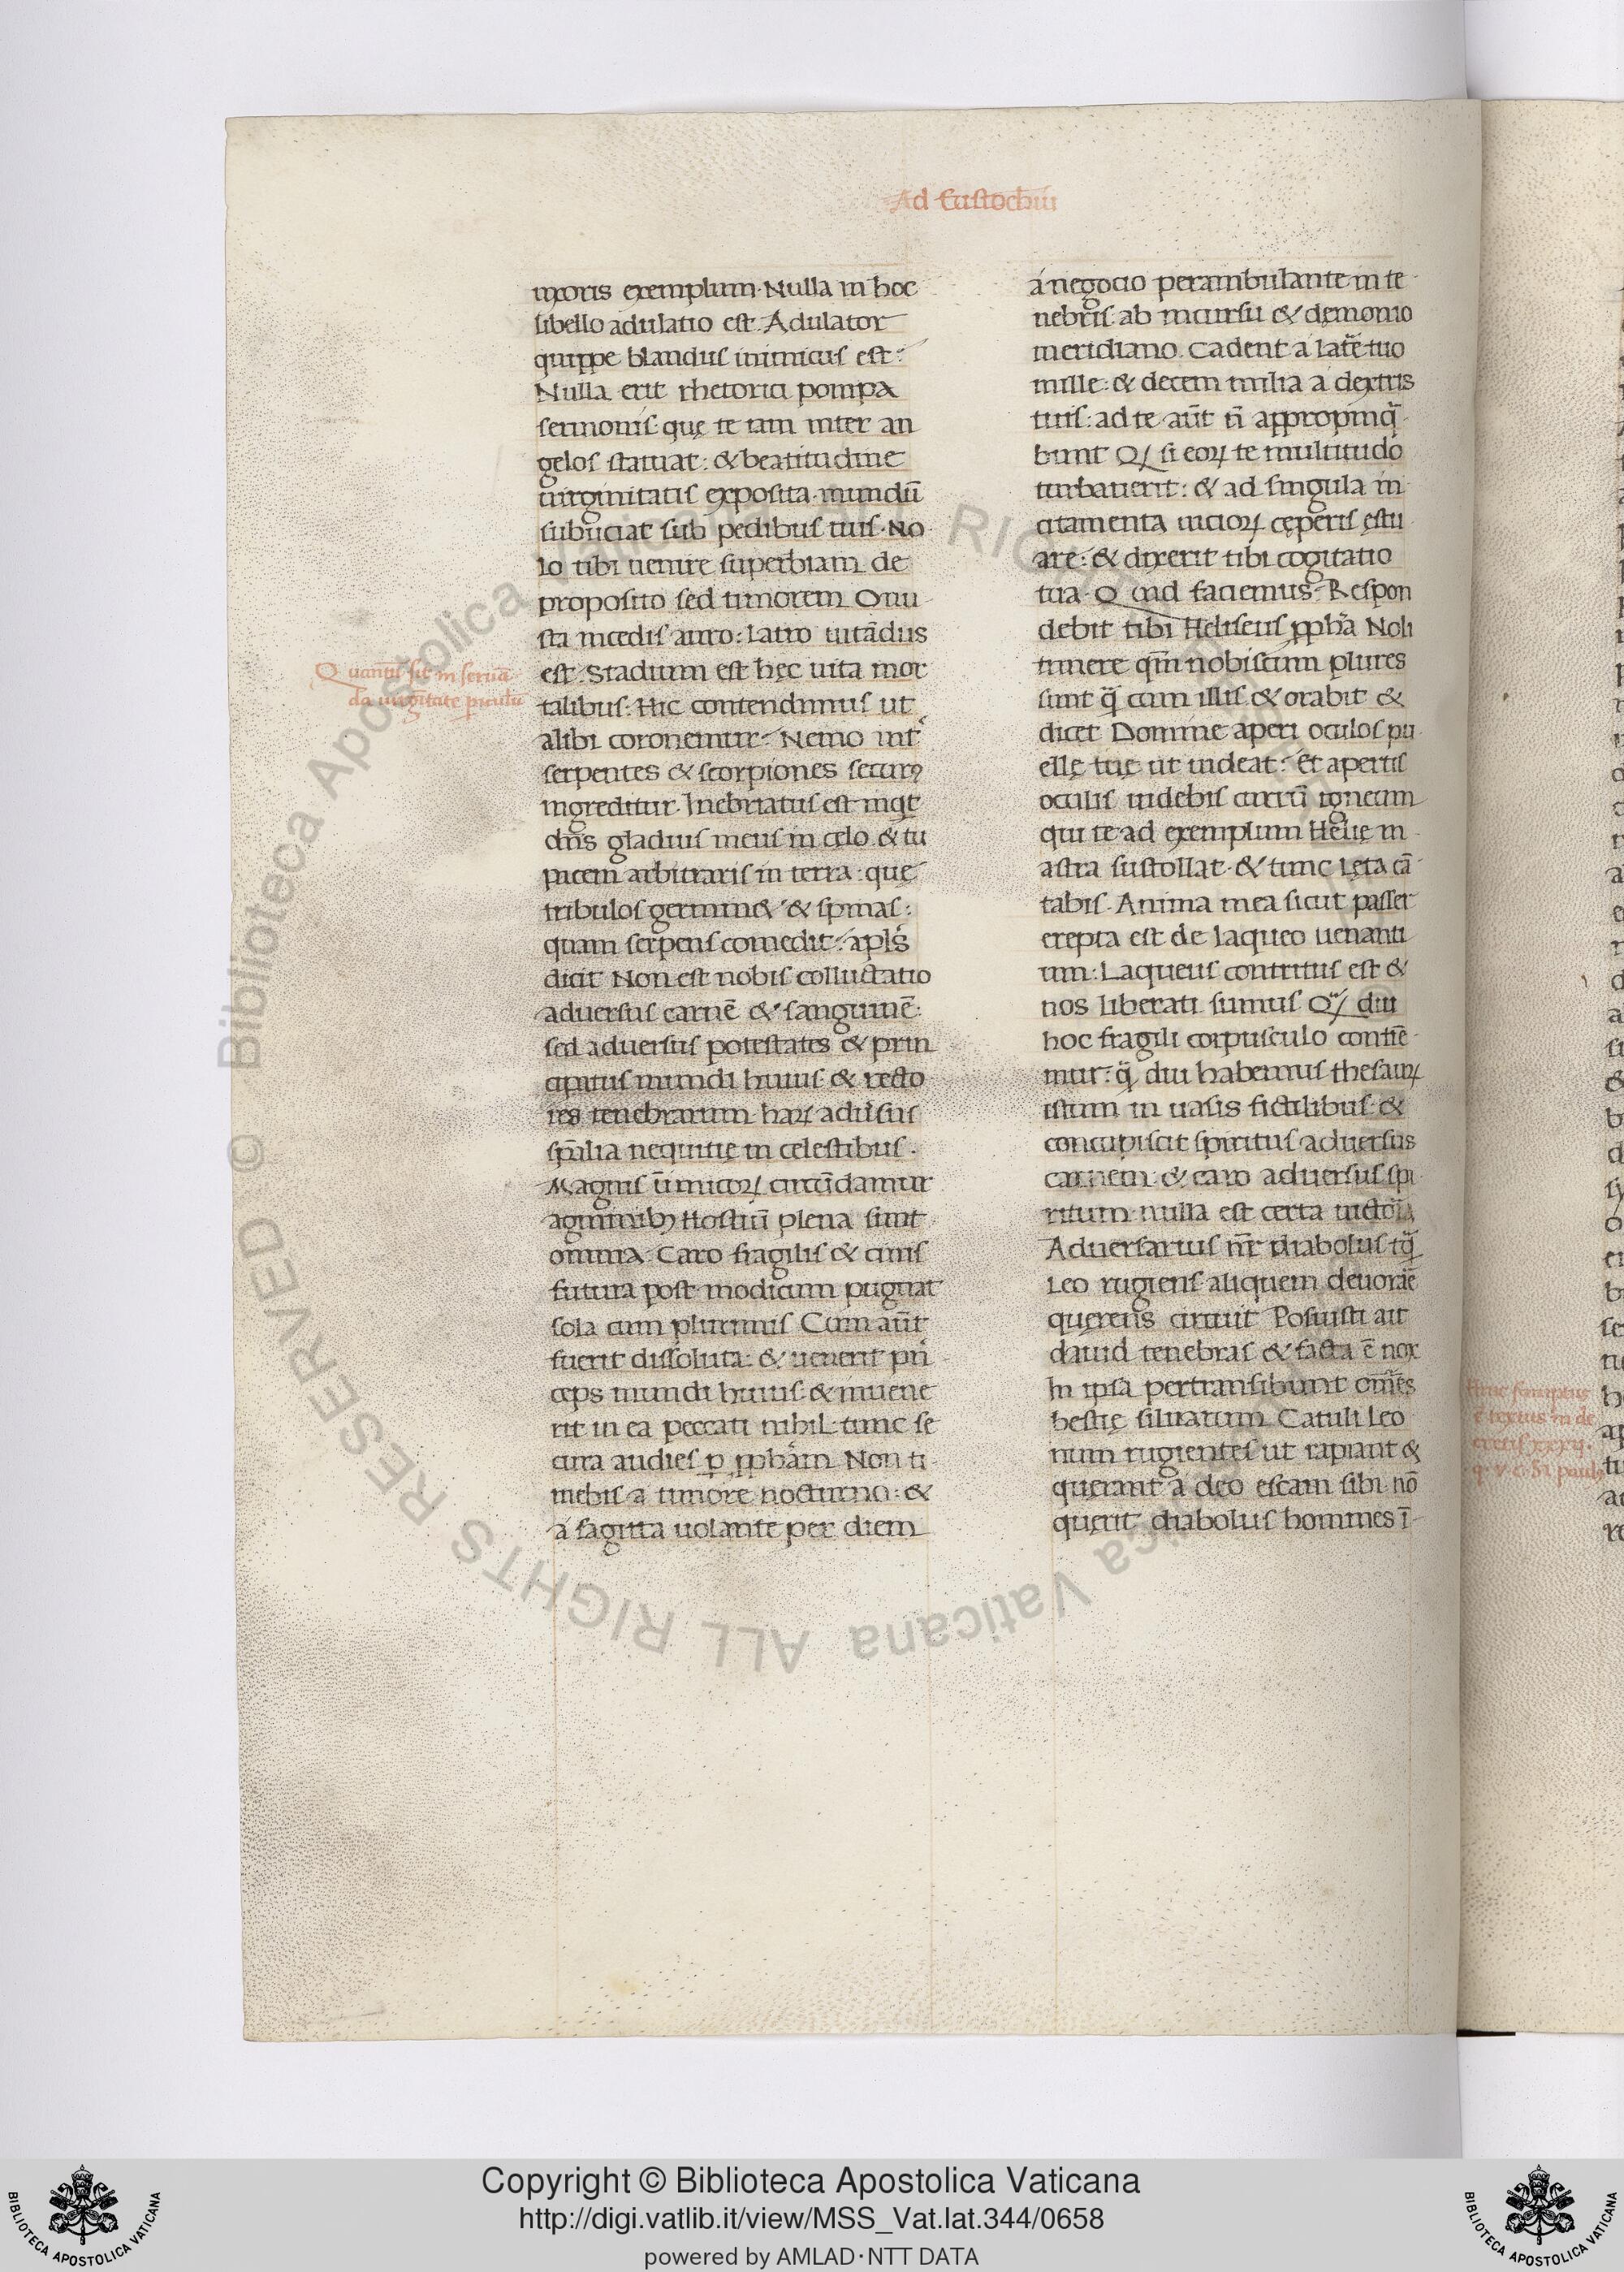 Ad Eustochiũ
uxoris exemplum. Nulla in hoc
libello adulatio est. Adulator
quippe blandus inimicus est.
Nulla erit rhetorici pompa
sermonis: quę te iam inter an
gelos statuat: & beatitudine
uirginitatis exposita mundũ
subiiciat sub pedibus tuis. No
lo tibi uenire superbiam de
proposito sed timorem Onu
sta incedis auro: latro uitãdus
est. Stadium est hęc uita mor
Quantũ sit in seruã
da uirgitate piculũ
talibus. Hic contendimus ut
alibi coronemur. Nemo int̃
serpentes & scorpiones securꝰ
ingreditur. Inebriatus est inqt
dñs gladius meus in cęlo. & tu
pacem arbitraris in terra: quę
tribulos germinet & spinas:
quam serpens comedit. apl̃s
dicit Non est nobis colluctatio
aduersus carnẽ & sanguinẽ:
sed aduersus potestates & prin
cipatus mundi huius & recto
res tenebrarum haꝝ adũsus
sp̃alia nequitię in celestibus.
Magnis inimicoꝝ circũdamur
agminibꝫ Hostiũ plena sunt
omnia. Caro fragilis & cinis
futura post modicum pugnat
sola cum plurimis Cum aũt
fuerit dissoluta: & uenerit prĩ
ceps mundi huius & inuene
rit in ea peccati nihil. tunc se
cura audies ꝑ ꝓphãm Non ti
mebis a timore nocturno: &
a sagitta uolante per diem
a negocio perambulante in te
nebris. ab incursu & dęmonio
meridiano. Cadent a latere tuo
mille: & decem milia a dextris
tuis: ad te aũt ñ appropinq̃
bunt Qꝫ si eoꝝ te multitudo
turbauerit: & ad singula in
citamenta uicioꝝ cęperis ęstu
are: & dixerit tibi cogitatio
tua. Quid faciemus. Respon
debit tibi Heliseus ꝓph̃a Noli
timere qm̃ nobiscum plures
sunt q̃ cum illis & orabit &
dicet Domine aperi oculos pu
ellę tuę ut uideat. Et apertis
oculis uidebis currũ igneum
qui te ad exemplum Helię in
astra sustollat. & tunc lęta cã
tabis. Anima mea sicut passer
erepta est de laqueo uenanti
um: Laqueus contritus est &
nos liberati sumus Qꝫ diu
hoc fragili corpusculo continẽ
mur. q̃ diu habemus thesauꝝ
istum in uasis fictilibus &
concupiscit spiritus aduersus
carnem & caro aduersus spi
ritum nulla est certa uictoria
Aduersarius nr̃ diabolus tq̃
Leo rugiens aliquem deuorare
querens circuit Posuisti ait
dauid tenebras & facta ẽ nox
In ipsa pertransibunt om̃es
bestię siluarum Catuli leo
num rugientes ut rapiant &
querant a deo escam sibi. nõ
querit diabolus homines ĩ
Copyright © Biblioteca Apostolica Vaticana
http://digi.vatlib.it/view/MSS_Vat.lat.344/0658
powered by AMLAD·NTT DATA